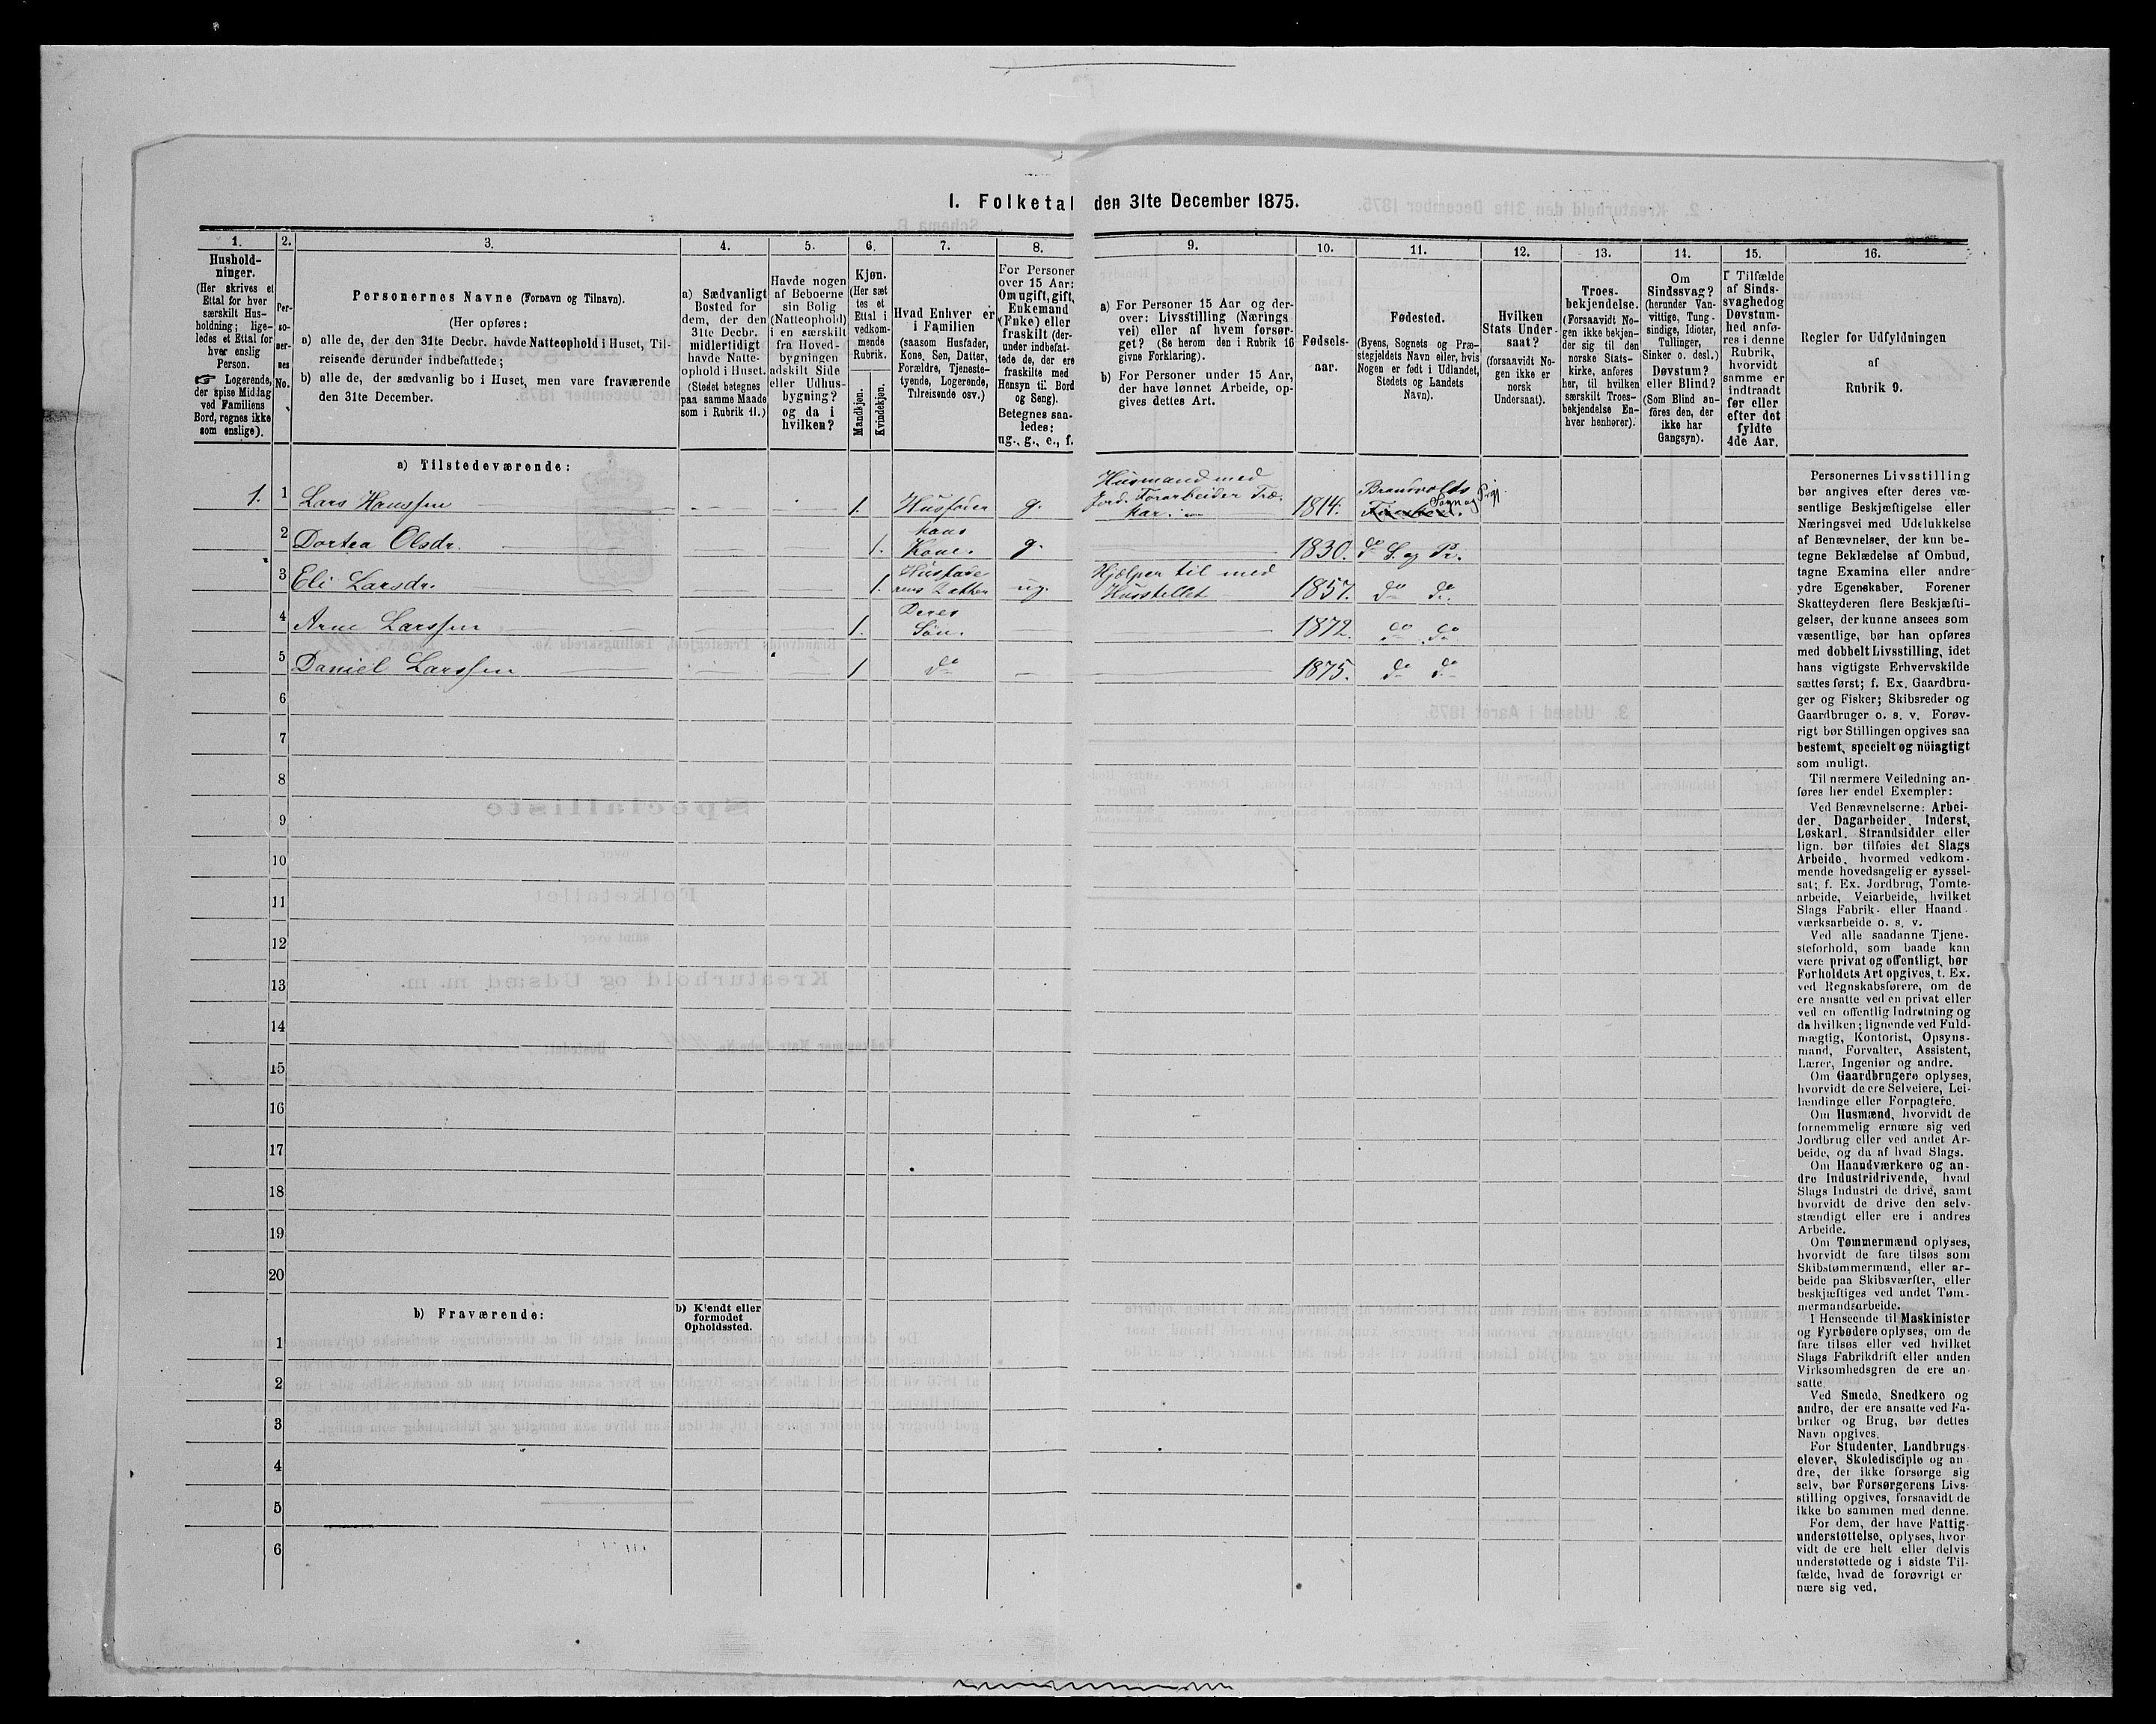 I. Folketal den 31te December 1875.
1.
Hushold-
ninger.
(Her skrives et
Ettal for hver
særskilt Hus-
holdning; lige-
ledes et Ettal for
hver enslig
Person.
☞ Logerende,
der spise Middag
ved Familiens
Bord, regnes ikke
som enslige).
2.
Per-
so-
ner-
nes
No.
3.
Personernes Navne (Fornavn og Tilnavn).
(Her opføres:
a) alle de, der den 31te Decbr. havde Natteophold i Huset, Til-
reisende derunder indbefattede;
b) alle de, der sædvanlig bo i Huset, men vare fraværende
den 31te December.
4.
a) Sædvanligt
Bosted for
dem, der den
31te Decbr.
midlertidigt
havde Natte-
ophold i Huset.
(Stedet betegnes
paa samme Maade
som i Rubrik 11.)
5.
Havde nogen
af Beboerne
sin Bolig
(Natteophold)
i en særskilt
fra Hoved-
bygningen
adskilt Side
eller Udhus-
bygning?
og da i
hvilken?
6.
Kjøn.
(Her sæt
tes et
Ettal i
vedkom-
mende
Rubrik.
Mandkjøn.
Kvindekjøn.
7.
Hvad Enhver er
i Familien
(saasom Husfader,
Kone, Søn, Datter,
Forældre, Tjeneste-
tyende, Logerende,
Tilreisende osv.)
8.
For Personer
over 15 Aar:
Om ugift, gift,
Enkemand
(Enke) eller
fraskilt (der-
under indbefat-
tede de, der ere
fraskilte med
Hensyn til Bord
og Seng).
Betegnes saa-
ledes:
ug., g., e., f.
9.
a) For Personer 15 Aar og der-
over: Livsstilling (Nærings
vei) eller af hvem forsør-
get? (Se herom den i Rubrik 16
givne Forklaring).
b) For Personer under 15 Aar,
der have lønnet Arbeide, op-
gives dettes Art.
10.
Fødsels-
aar.
11.
Fødested.
(Byens, Sognets og Præ-
stegjeldets Navn eller, hvis
Nogen er født i Udlandet,
Stedets og Landets
Navn).
12.
Hvilken
Stats Under-
saat?
(forsaavidt No-
gen ikke er
norsk
Undersaat).
13.
Troes-
bekjendelse.
(Forsaavidt No-
gen ikke bekjen-
der sig til den
norske Stats-
kirke, anføres
her, til hvilken
særskilt Troes-
bekjendelse En-
hver henhører).
14.
Om
Sindssvag?
(herunder Van-
vittige, Tung-
sindige, Idioter,
Tullinger,
Sinker o. desl.)
Døvstum?
eller Blind?
(Som Blind an-
føres den, der
ikke har
Gangsyn).
15.
I Tilfælde
af Sinds-
svaghedog
Døvstum-
hed anfø-
res i denne
Rubrik,
hvorvidt
samme er
indtraadt
før eller
efter det
fyldte
4de Aar.
16.
Regler for Udfyldningen
af
Rubrik 9.
a) Tilstedeværende:
1. 1 Lars Hanssen 1. Husfader g. Husmand med Jord. 1814. Brandvolds Sogn og Prgj.
2 Dortea Olsdr. 1. hans Kone. g. 1830. do S. og Pr.
3 Eli Larsdr. 1. Husfaderens Datter ug. Hjælper til med Husstellet 1857. do do
4 Arne Larssen 1. Deres Søn. 1872. do do
5 Daniel Larssen 1 do 1875. do do
6
7
8
9
10
11
12
13
14
15
16
17
18
19
20
b) Fraværende:
b) Kjendt eller
formodet
Opholdssted.
1
2
3
4
5
6
Personernes Livsstilling
bør angives efter deres væ-
sentlige Beskjæftigelse eller
Næringsvei med Udelukkelse
af Benævnelser, der kun be-
tegne Beklædelse af Ombud,
tagne Examina eller andre
ydre Egenskaber. Forener
Skatteyderen flere Beskjæfti-
gelser, der kunne ansees som
væsentlige, bør han opføres
med dobbelt Livsstilling, idet
hans vigtigste Erhvervskilde
sættes først; f. Ex. Gaardbru-
ger og Fisker; Skibsreder og
Gaardbruger o. s. v. Forøv-
rigt bør Stillingen opgives saa
bestemt, specielt og nöiagtigt
som muligt.
Til nærmere Veiledning an-
føres her endel Exempler:
Ved Benævnelserne: Arbei-
der, Dagarbeider, Inderst,
Løskarl, Strandsidder eller
lign. bør tilføies det Slags
Arbeide, hvormed vedkom-
mende hovedsagelig er syssel-
sat; f. Ex. Jordbrug, Tomte-
arbeide, Veiarbeide, hvilket
Slags Fabrik- eller Haand-
værksarbeide o. s. v.
Ved alle saadanne Tjene-
steforhold, som baade kan
være privat og offentligt, bør
Forholdets Art opgives, t. Ex.
ved Regnskabsførere, om de
ere ansatte ved en privat eller
ved en offentlig Indretning og
da hvilken; lignende ved Fuld-
mægtig, Kontorist, Opsyns-
mand, Forvalter, Assistent,
Lærer, Ingeniør og andre.
Om Gaardbrugere oplyses,
hvorvidt de ere Selveiere, Lei-
lændinge eller Forpagtere.
Om Husmænd, hvorvidt de
fornemmelig ernære sig ved
Jordbrug eller ved andet Ar-
beide, og da af hvad Slags.
Om Haandværkere og an-
dre Industridrivende, hvad
Slags Industri de drive, samt
hvorvidt de drive den selv-
stændigt eller ere i andres
Arbeide.
Om Tømmermænd oplyses,
hvorvidt de fare tilsøs som
Skibstømmermænd, eller ar-
beide paa Skibsværfter, eller
beskjæftiges ved andet Tøm-
mermandsarbeide.
I Henseende til Maskinister
og Fyrbødere oplyses, om de
fare tilsøs eller ved hvilket
Slags Fabrikdrift eller anden
Virksomhedsgren de ere an-
satte.
Ved Smede, Snedkere og
andre, der ere ansatte ved Fa-
briker og Brug, bør dettes
Navn opgives.
For Studenter, Landbrugs-
elever, Skoledisciple og an-
dre, der ikke forsørge sig
selv, bør Forsørgerens Livs-
stilling opgives, forsaavidt de
ikke bo sammen med denne.
For dem, der have Fattig-
understøttelse, oplyses, hvor-
vidt de ere helt eller delvis
understøttede og i sidste Til-
fælde, hvad de forøvrigt er-
nære sig ved.